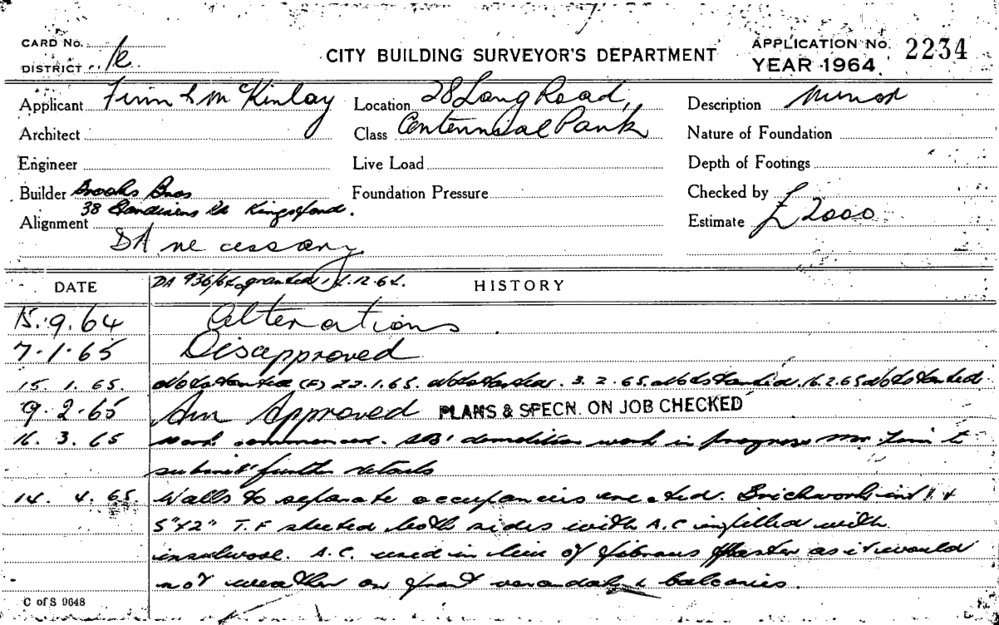 CARD No.
CITY BUILDING SURVEYOR'S DEPARTMENT
APPLICATION No. 2234
DISTRICT
YEAR 1964
Applicant Finn & McKinlay
Location 28 Lang Road,
Description Minor
Architect
Class Centennial Park
Nature of Foundation
Engineer
Live Load
Depth of Footings
Builder Brooks Bros
Foundation Pressure
Checked by
38 Rd Kingsford.
Alignment
Estimate £2000
DA necessary
DATE
DA 936/64 granted 12.64.
HISTORY
15.9.64 Alterations
7.1.65 Disapproved
15.1.65 Not started (F) 22.1.65. Not started. 3.2.65 Not started. 16.2.65 Not started.
9.2.65 Approved PLANS & SPECN. ON JOB CHECKED
16.3.65 Work commenced. demolition work in progress Mr Finn to
submit further details
14.4.65 Walls to separate occupancies erected. Brickwork in &
5"x2" T.F sheeted both sides with A.C infilled with
insulwool. A.C. used in lieu of fibrous plaster as it would
not weather on front verandah & balconies.
C of S 9648